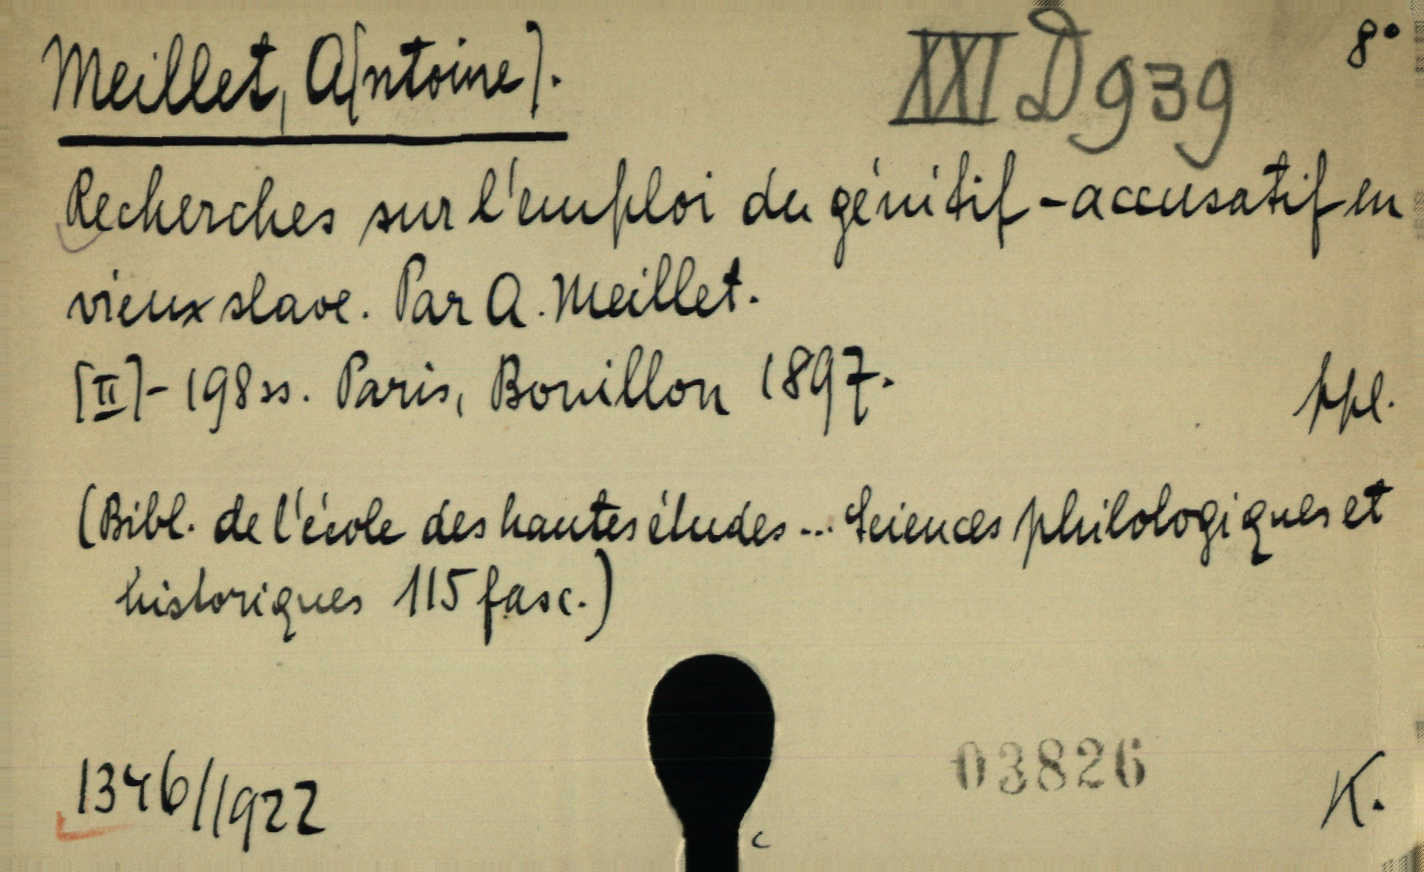 Meillet, A[ntoine].
XXI D 939
8°
Recherches sur l'emploi du génitif-accusatif en
vieux slave. Par A. Meillet.
[II]-198 ss. Paris, Bouillon 1897.
ppl.
(Bibl. de l'école des hautes études ... Sciences philologiques et
historiques 115 fasc.)
1346/1922
03826
K.
c